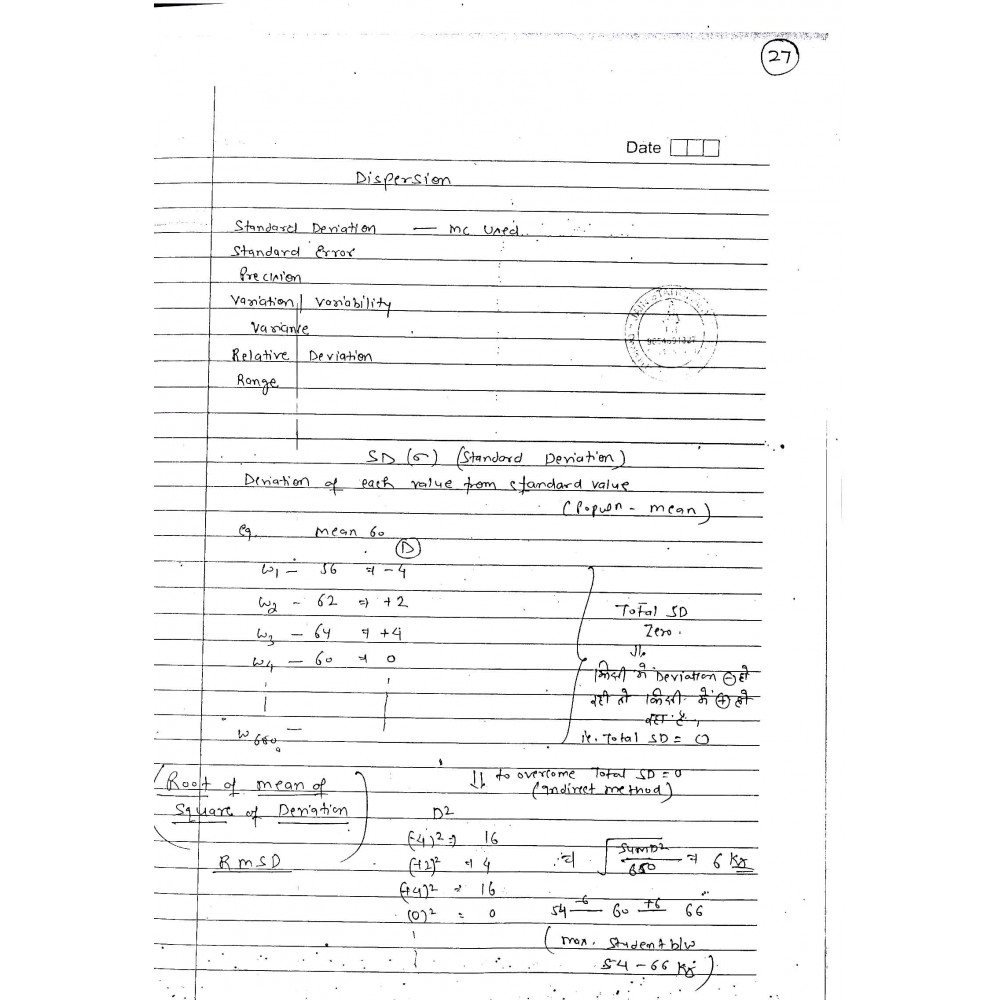 27
Date
Dispersion
Standard Deviation — mc used.
Standard Error
Precision
Variation / Variability
Variance
Relative Deviation
Range
SD (σ) (Standard Deviation)
Deviation of each value from standard value
(Popuon - mean)
eg. mean 60
D
W1 – 56 ⇒ -4
W2 – 62 ⇒ +2
W3 – 64 ⇒ +4
W4 – 60 ⇒ 0
W680 –
Total SD
Zero.
⇓
किसी में Deviation ⊖ हो
रही तो किसी में ⊕ हो
रहा है,
ie. Total SD = 0
⇓ to overcome Total SD = 0
(Indirect method)
(Root of mean of
Square of Deviation)
RMSD
D²
(-4)² ⇒ 16
(+2)² ⇒ 4
(+4)² = 16
(0)² = 0
⇒ √SumD²/680 ⇒ 6 Kg
54 -6 60 +6 66
(max. student b/w
54 – 66 Kg)